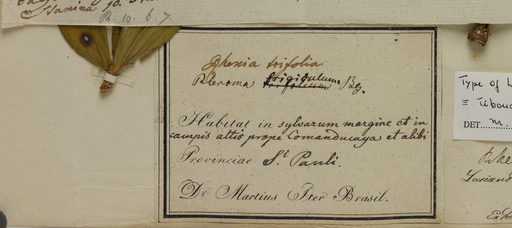 Stamina 10.
R. 10. 6. 7
trifolia
Pleroma frigidulum
trifolium
Habitat in sylvarum margine et in
campis altis prope Comanducaya et alibi
Provinciae St. Pauli.
Dr. Martius Iter Brasil.
Type of
≡ Tibouc
DET. M.